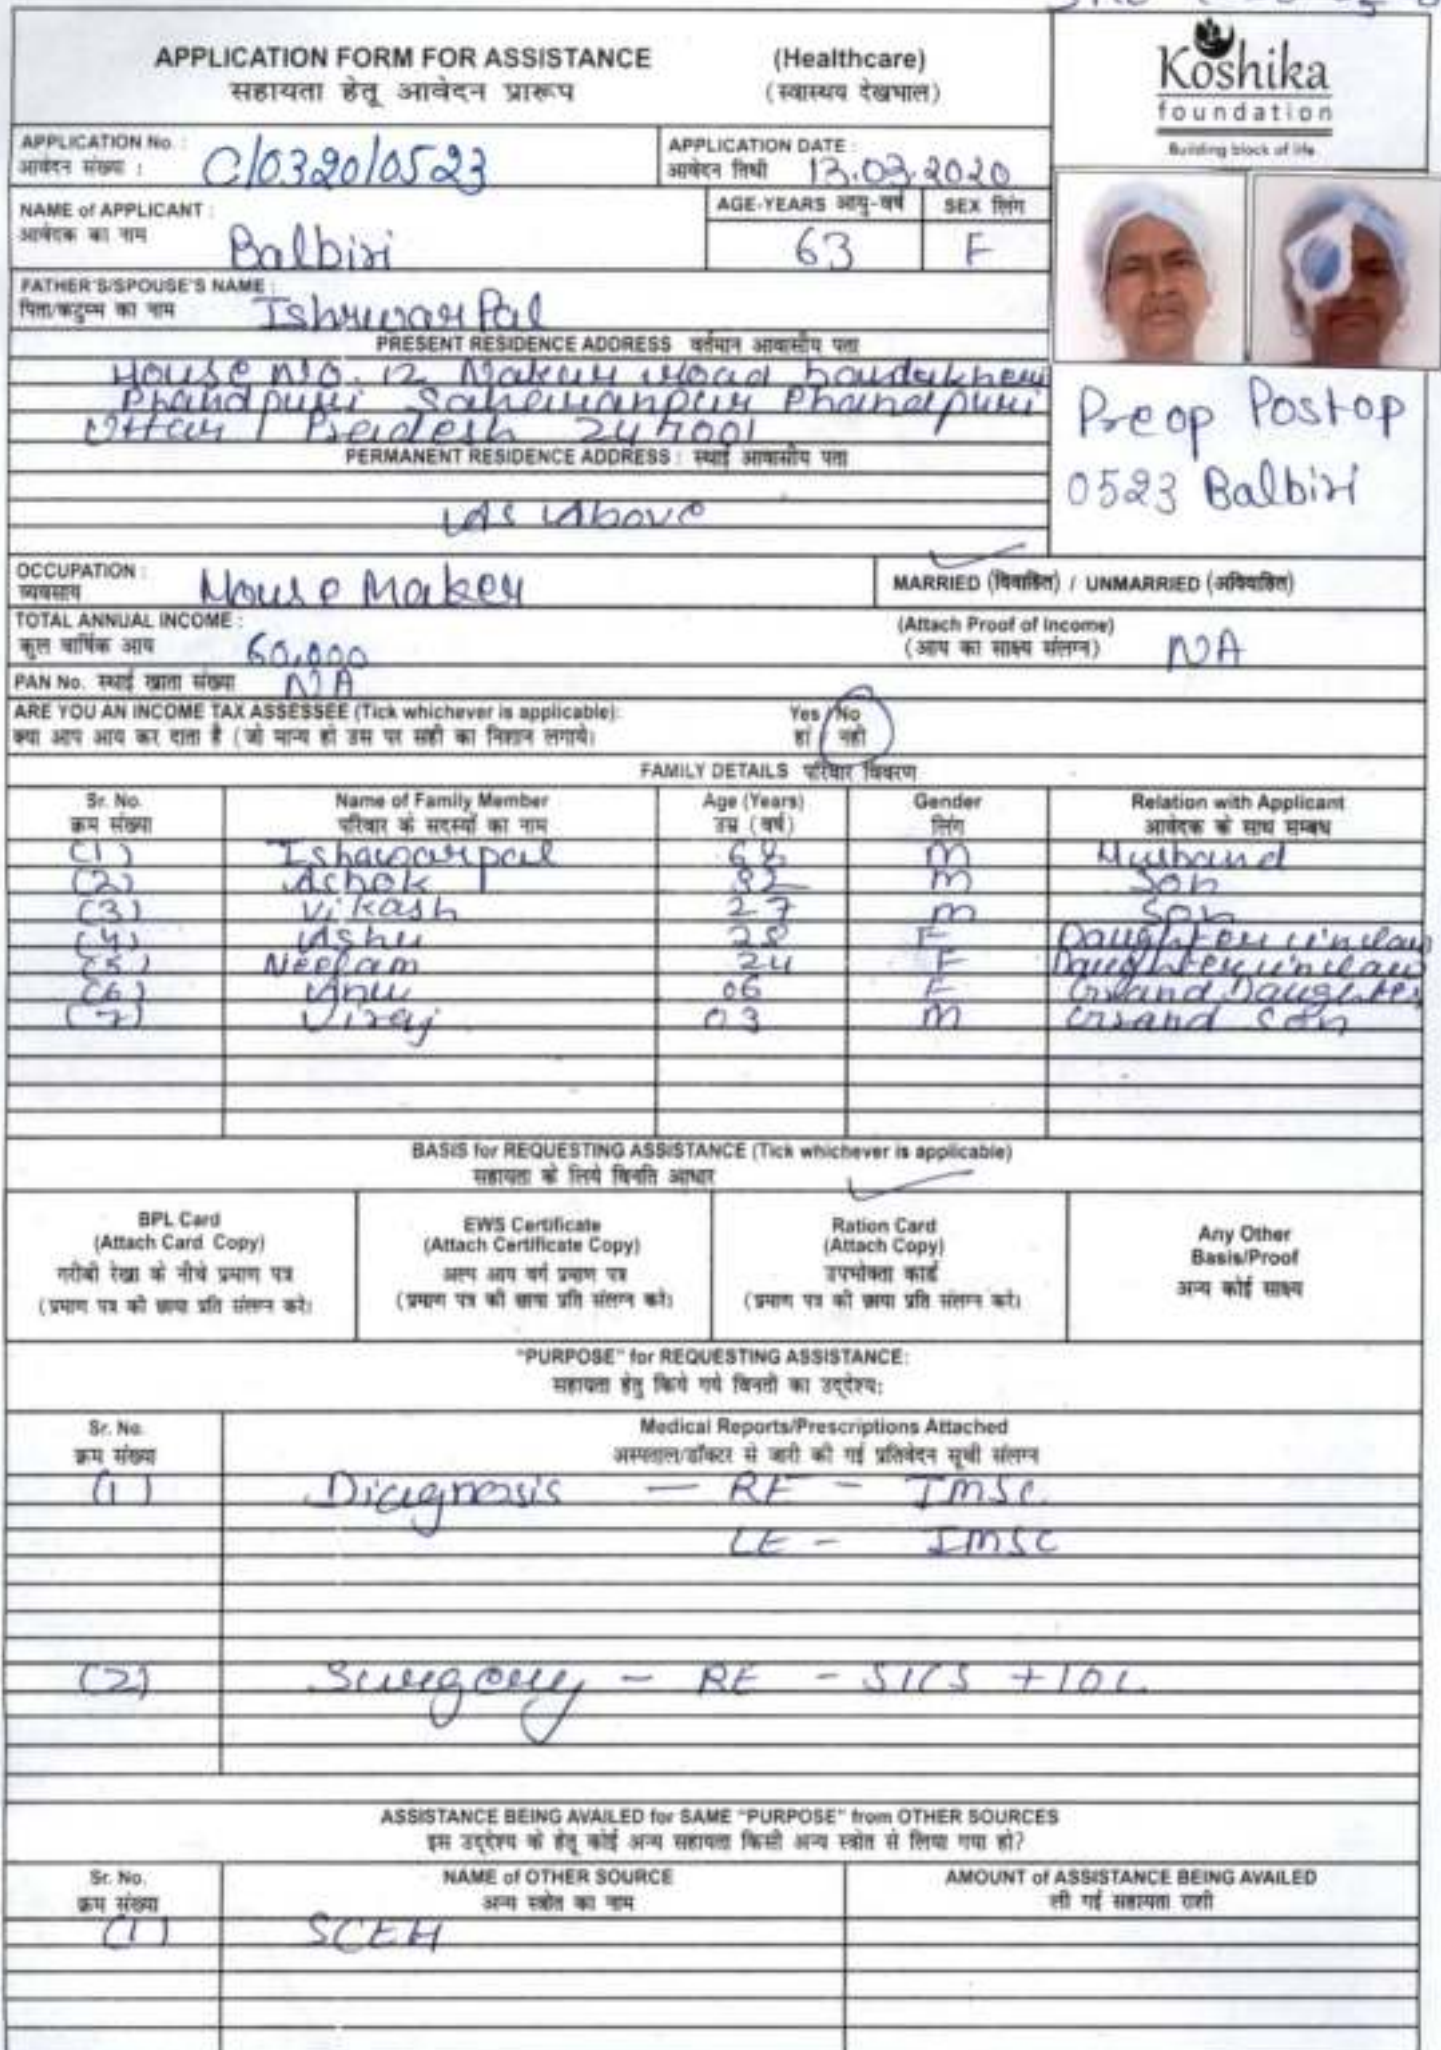 APPLICATION FORM FOR ASSISTANCE (Healthcare)
सहायता हेतू आवेदन प्रारूप (स्वास्थय देखभाल)
Koshika
foundation
Building block of life
APPLICATION No. :
आवेदन संख्या : C/0320/0523
APPLICATION DATE :
आवेदन तिथी 13.03.2020
NAME of APPLICANT :
आवेदक का नाम Balbiri
AGE-YEARS आयु-वर्ष
63
SEX लिंग
F
FATHER'S/SPOUSE'S NAME :
पिता/कटुम्ब का नाम Ishwar Pal
PRESENT RESIDENCE ADDRESS वर्तमान आवासीय पता
House No. 12 Nakur Road
Phandpuri Saharanpur Phandpuri
Uttar Pradesh 247001
PERMANENT RESIDENCE ADDRESS : स्थाई आवासीय पता
As Above
Preop Postop
0523 Balbiri
OCCUPATION :
व्यवसाय House Maker
MARRIED (विवाहित) / UNMARRIED (अविवाहित)
TOTAL ANNUAL INCOME :
कुल वार्षिक आय 60,000
(Attach Proof of Income)
(आय का साक्ष्य संलग्न) NA
PAN No. स्थाई खाता संख्या NA
ARE YOU AN INCOME TAX ASSESSEE (Tick whichever is applicable): Yes / No
क्या आप आय कर दाता है (जो मान्य हो उस पर सही का निशान लगाये। हां / नही
FAMILY DETAILS परिवार विवरण
Sr. No. Name of Family Member Age (Years) Gender Relation with Applicant
क्रम संख्या परिवार के सदस्यों का नाम उम्र (वर्ष) लिंग आवेदक के साथ सम्बध
(1) Ishawarpal 68 M Husband
(2) Ashok 32 M Son
(3) Vikash 27 M Son
(4) Ashu 28 F Daughter in law
(5) Neelam 24 F Daughter in law
(6) Anu 06 F Grand Daughter
(7) Viraj 03 M Grand Son
BASIS for REQUESTING ASSISTANCE (Tick whichever is applicable)
सहायता के लिये विनति आधार
BPL Card
(Attach Card Copy)
गरीबी रेखा के नीचे प्रमाण पत्र
(प्रमाण पत्र की छाया प्रति संलग्न करे।
EWS Certificate
(Attach Certificate Copy)
अल्प आय वर्ग प्रमाण पत्र
(प्रमाण पत्र की छाया प्रति संलग्न करे।
Ration Card
(Attach Copy)
उपभोक्ता कार्ड
(प्रमाण पत्र की छाया प्रति संलग्न करे।
Any Other
Basis/Proof
अन्य कोई साक्ष्य
"PURPOSE" for REQUESTING ASSISTANCE:
सहायता हेतु किये गये विनती का उद्देश्य:
Sr. No. Medical Reports/Prescriptions Attached
क्रम संख्या अस्पताल/डॉक्टर से जारी की गई प्रतिवेदन सूची संलग्न
(1) Diagnosis - RE - IMSC
LE - IMSC
(2) Surgery - RE - SICS + IOL
ASSISTANCE BEING AVAILED for SAME "PURPOSE" from OTHER SOURCES
इस उद्देश्य के हेतू कोई अन्य सहायता किसी अन्य स्त्रोत से लिया गया हो?
Sr. No. NAME of OTHER SOURCE AMOUNT of ASSISTANCE BEING AVAILED
क्रम संख्या अन्य स्त्रोत का नाम ली गई सहायता राशी
(1) SCEH